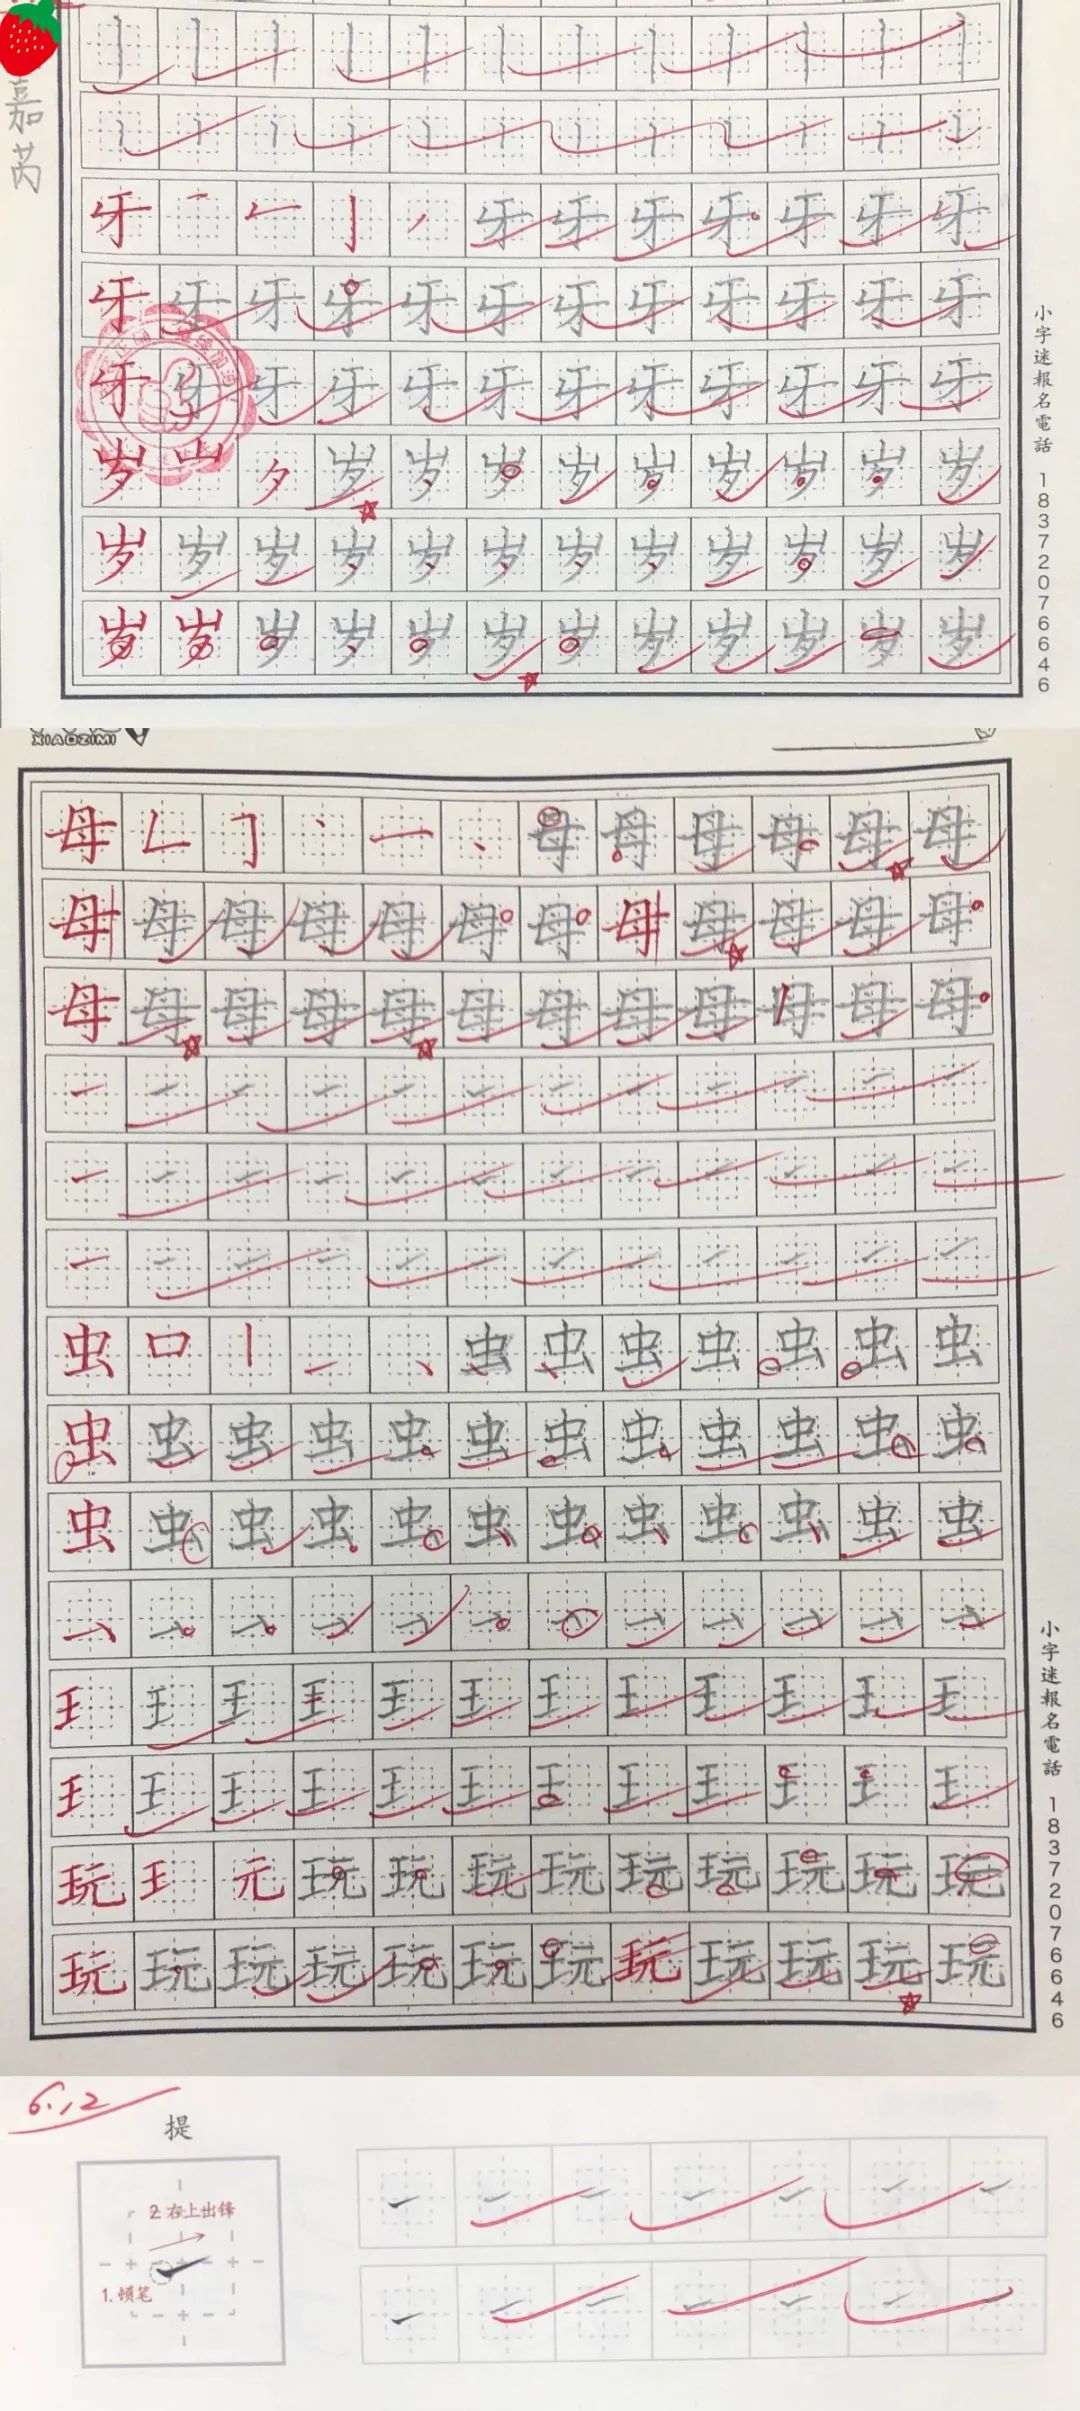 嘉芮
牙 牙 牙 牙 牙 牙 牙 牙
牙 牙 牙 牙 牙 牙 牙 牙 牙 牙 牙 牙
牙 牙 牙 牙 牙 牙 牙 牙 牙 牙 牙 牙
岁 山 夕 岁 岁 岁 岁 岁 岁 岁 岁 岁
岁 岁 岁 岁 岁 岁 岁 岁 岁 岁 岁 岁
岁 岁 岁 岁 岁 岁 岁 岁 岁 岁 岁 岁
小字迷報名電話 18372076646
XIAOZIMI
母 母 母 母 母 母 母
母 母 母 母 母 母 母 母 母 母 母 母
母 母 母 母 母 母 母 母 母 母 母 母
虫 口 虫 虫 虫 虫 虫 虫 虫
虫 虫 虫 虫 虫 虫 虫 虫 虫 虫 虫 虫
虫 虫 虫 虫 虫 虫 虫 虫 虫 虫 虫 虫
王 王 王 王 王 王 王 王 王 王 王 王
王 王 王 王 王 王 王 王 王 王 王 王
玩 王 元 玩 玩 玩 玩 玩 玩 玩 玩 玩
玩 玩 玩 玩 玩 玩 玩 玩 玩 玩 玩 玩
小字迷報名電話 18372076646
6.12
提
2.右上出锋
1.顿笔